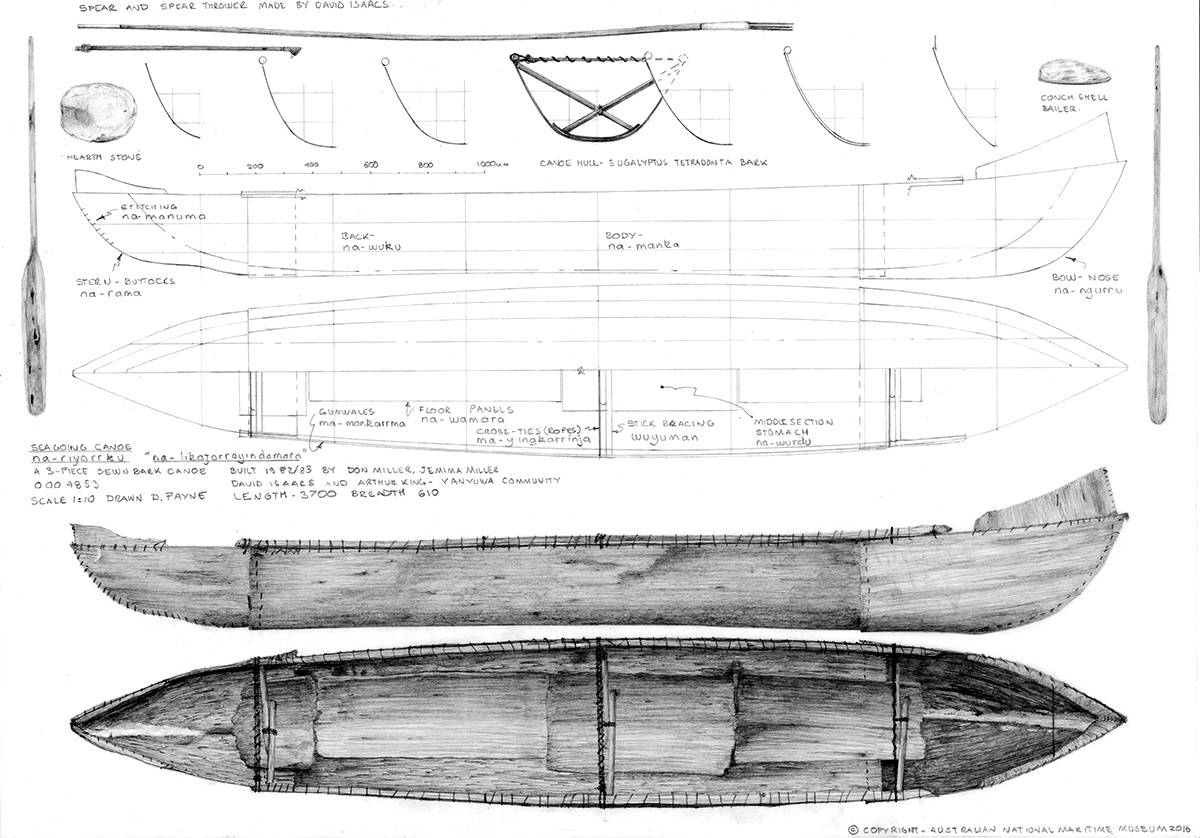 SPEAR AND SPEAR THROWER MADE BY DAVID ISAACS.
HEARTH STONE
CONCH SHELL
BAILER.
0 200 400 600 800 1000MM
CANOE HULL - EUGALYPTUS TETRADONTA BARK
STITCHING
na-manuma
BACK-
na-wuku
BODY-
na-manka
STERN - BUTTOCKS
na-rama
BOW - NOSE
na-ngurru
GUNWALES
ma-mankarrma
FLOOR PANELS
na-wamara
CROSS-TIES (ROPES)
ma-yingkarrinja
STICK BRACING
wuyuman
MIDDLE SECTION
STOMACH
na-wurdu
SEAGOING CANOE
na-riyarrku "na-likajarrayindamara"
A 3-PIECE SEWN BARK CANOE BUILT 1982/83 BY DON MILLER, JEMIMA MILLER
000 4853 DAVID ISAACS AND ARTHUR KING - YANYUWA COMMUNITY
SCALE 1:10 DRAWN D. PAYNE LENGTH - 3700 BREADTH 610
© COPYRIGHT - AUSTRALIAN NATIONAL MARITIME MUSEUM 2016